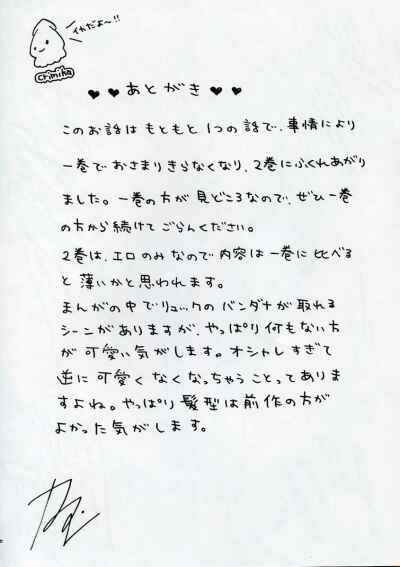 イカだよ〜!!
crimika
♥♥あとがき♥♥
このお話はもともと1つの話で、事情により
一巻でおさまりきらなくなり、2巻にふくれあがり
ました。一巻の方が見どころなので、ぜひ一巻
の方から続けてごらんください。
2巻は、エロのみなので内容は一巻に比べる
と薄いかと思われます。
まんがの中でリュックのバンダナが取れる
シーンがありますが、やっぱり何もない方
が可愛い気がします。オシャレすぎて
逆に可愛くなくなっちゃうことってありま
すよね。やっぱり髪型は前作の方が
よかった気がします。